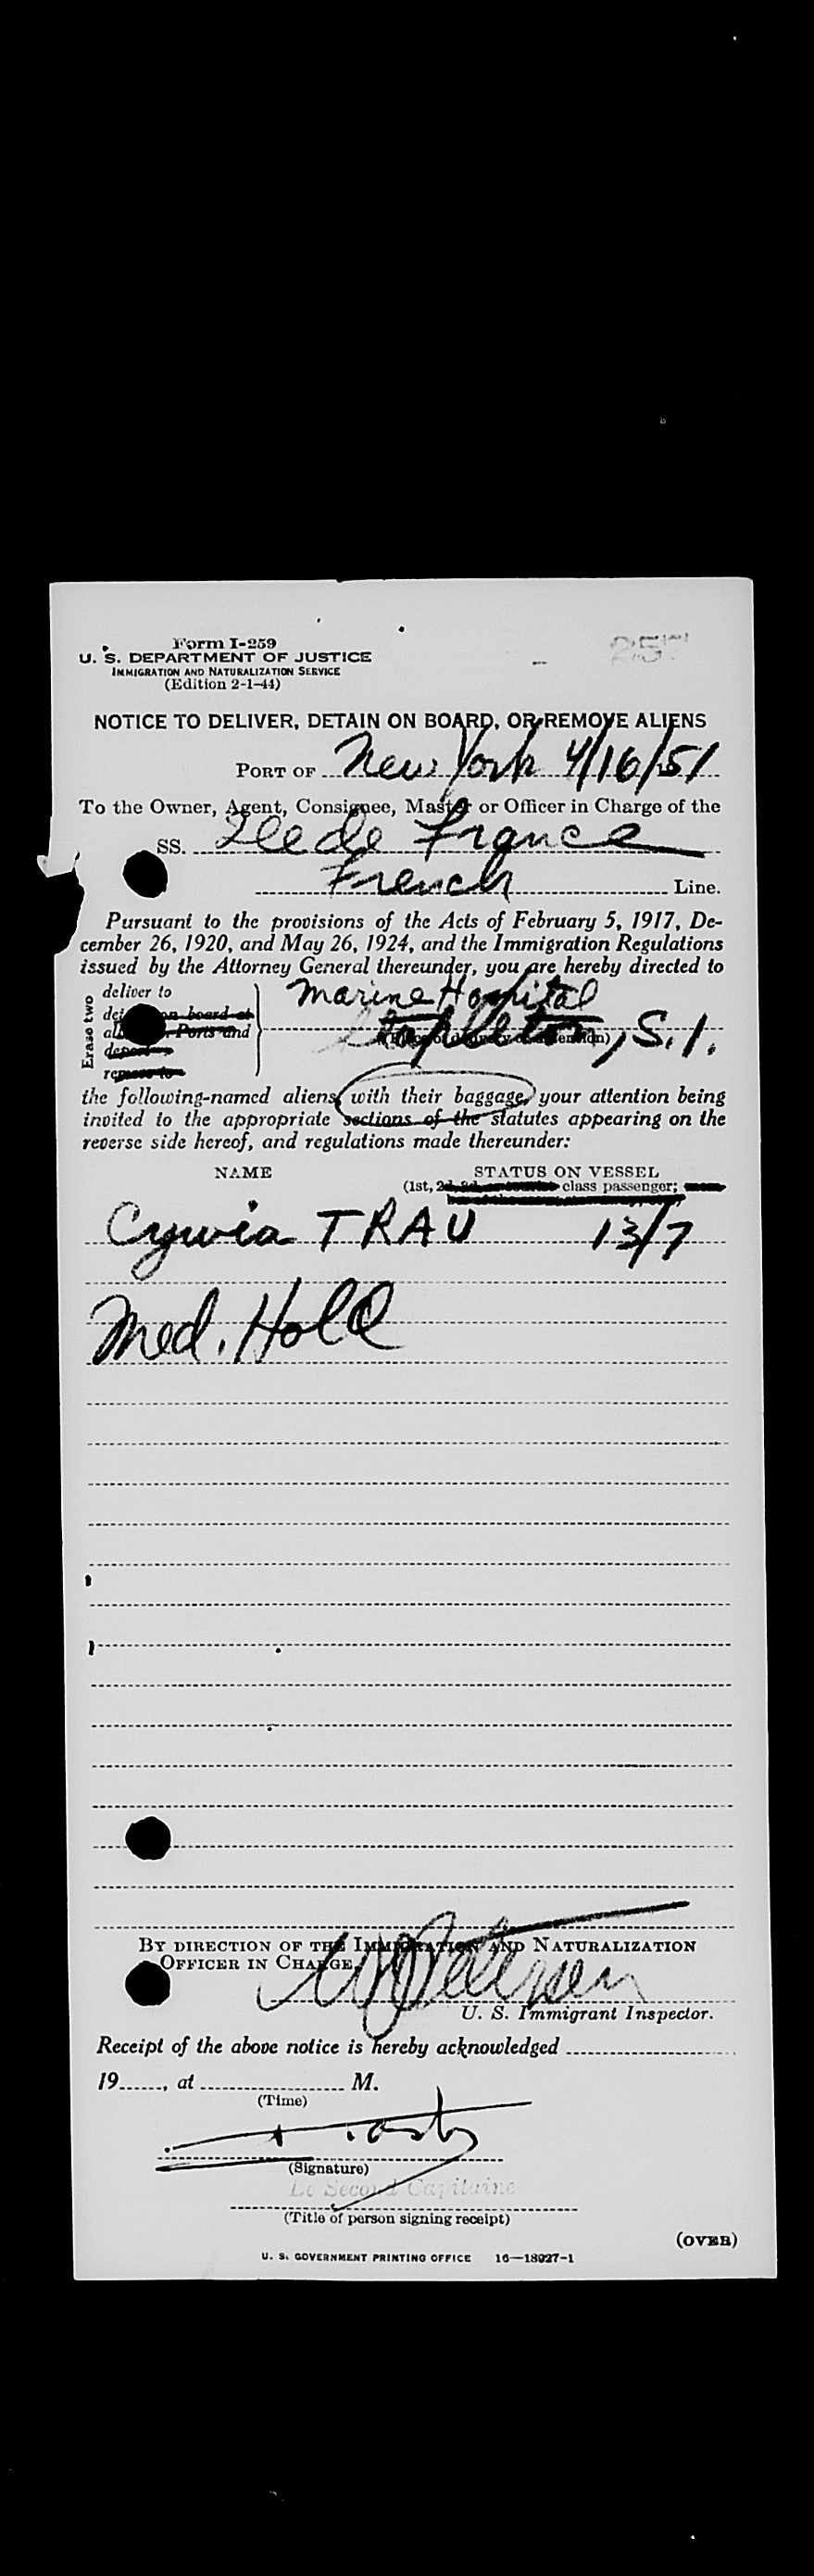 257
Form I-259
U. S. DEPARTMENT OF JUSTICE
IMMIGRATION AND NATURALIZATION SERVICE
(Edition 2-1-44)
NOTICE TO DELIVER, DETAIN ON BOARD, OR REMOVE ALIENS
PORT OF New York 4/16/51
To the Owner, Agent, Consignee, Master or Officer in Charge of the
SS. Ile de France
French Line.
Pursuant to the provisions of the Acts of February 5, 1917, De-
cember 26, 1920, and May 26, 1924, and the Immigration Regulations
issued by the Attorney General thereunder, you are hereby directed to
Erase two
deliver to
on board at
Ports and
deport
remove to
Marine Hospital
Stapleton, S.I.
(Place of delivery or detention)
the following-named aliens, with their baggage, your attention being
invited to the appropriate sections of the statutes appearing on the
reverse side hereof, and regulations made thereunder:
NAME STATUS ON VESSEL
(1st, 2d, class passenger;
Cywia TRAU 13/7
Med. Hold
BY DIRECTION OF THE IMMIGRATION AND NATURALIZATION
OFFICER IN CHARGE
U. S. Immigrant Inspector.
Receipt of the above notice is hereby acknowledged
19......, at M.
(Time)
(Signature)
Le Second Capitaine
(Title of person signing receipt)
(OVER)
U. S. GOVERNMENT PRINTING OFFICE 16—18927-1